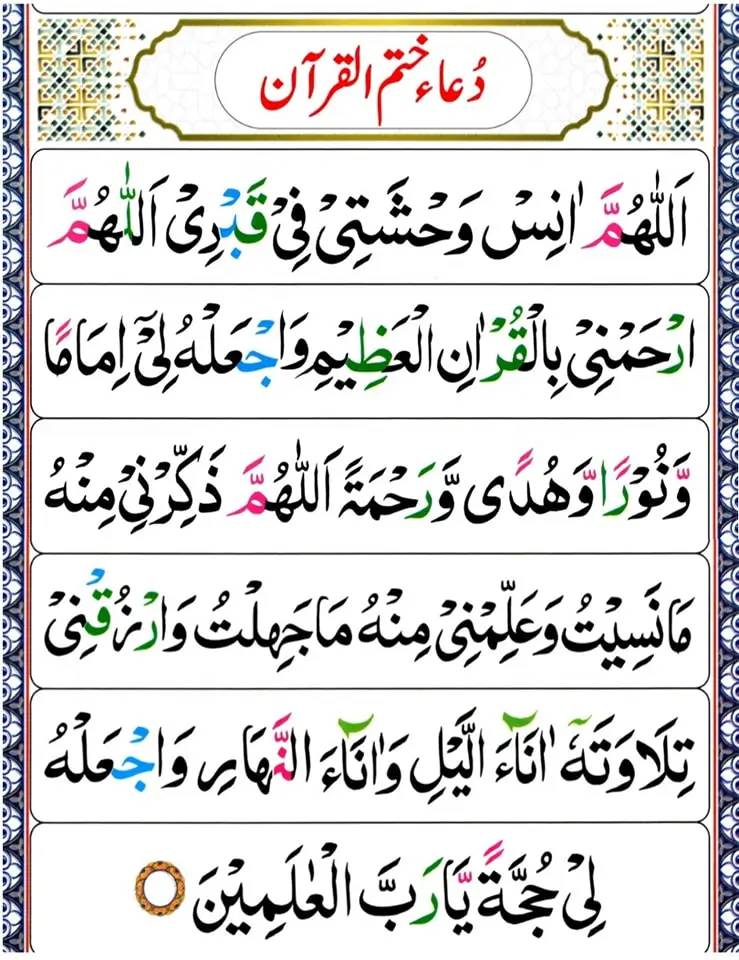 دُعاء ختم القرآن
اَللّٰهُمَّ اٰنِسْ وَحْشَتِیْ فِیْ قَبْرِیْ اَللّٰهُمَّ
ارْحَمْنِیْ بِالْقُرْاٰنِ الْعَظِیْمِ وَاجْعَلْهُ لِیْٓ اِمَامًا
وَّنُوْرًا وَّهُدًی وَّرَحْمَةً اَللّٰهُمَّ ذَکِّرْنِیْ مِنْهُ
مَا نَسِیْتُ وَعَلِّمْنِیْ مِنْهُ مَا جَهِلْتُ وَارْزُقْنِیْ
تِلَاوَتَهٗٓ اٰنَآءَ الَّیْلِ وَاٰنَآءَ النَّهَارِ وَاجْعَلْهُ
لِیْ حُجَّةً یَّارَبَّ الْعٰلَمِیْنَ